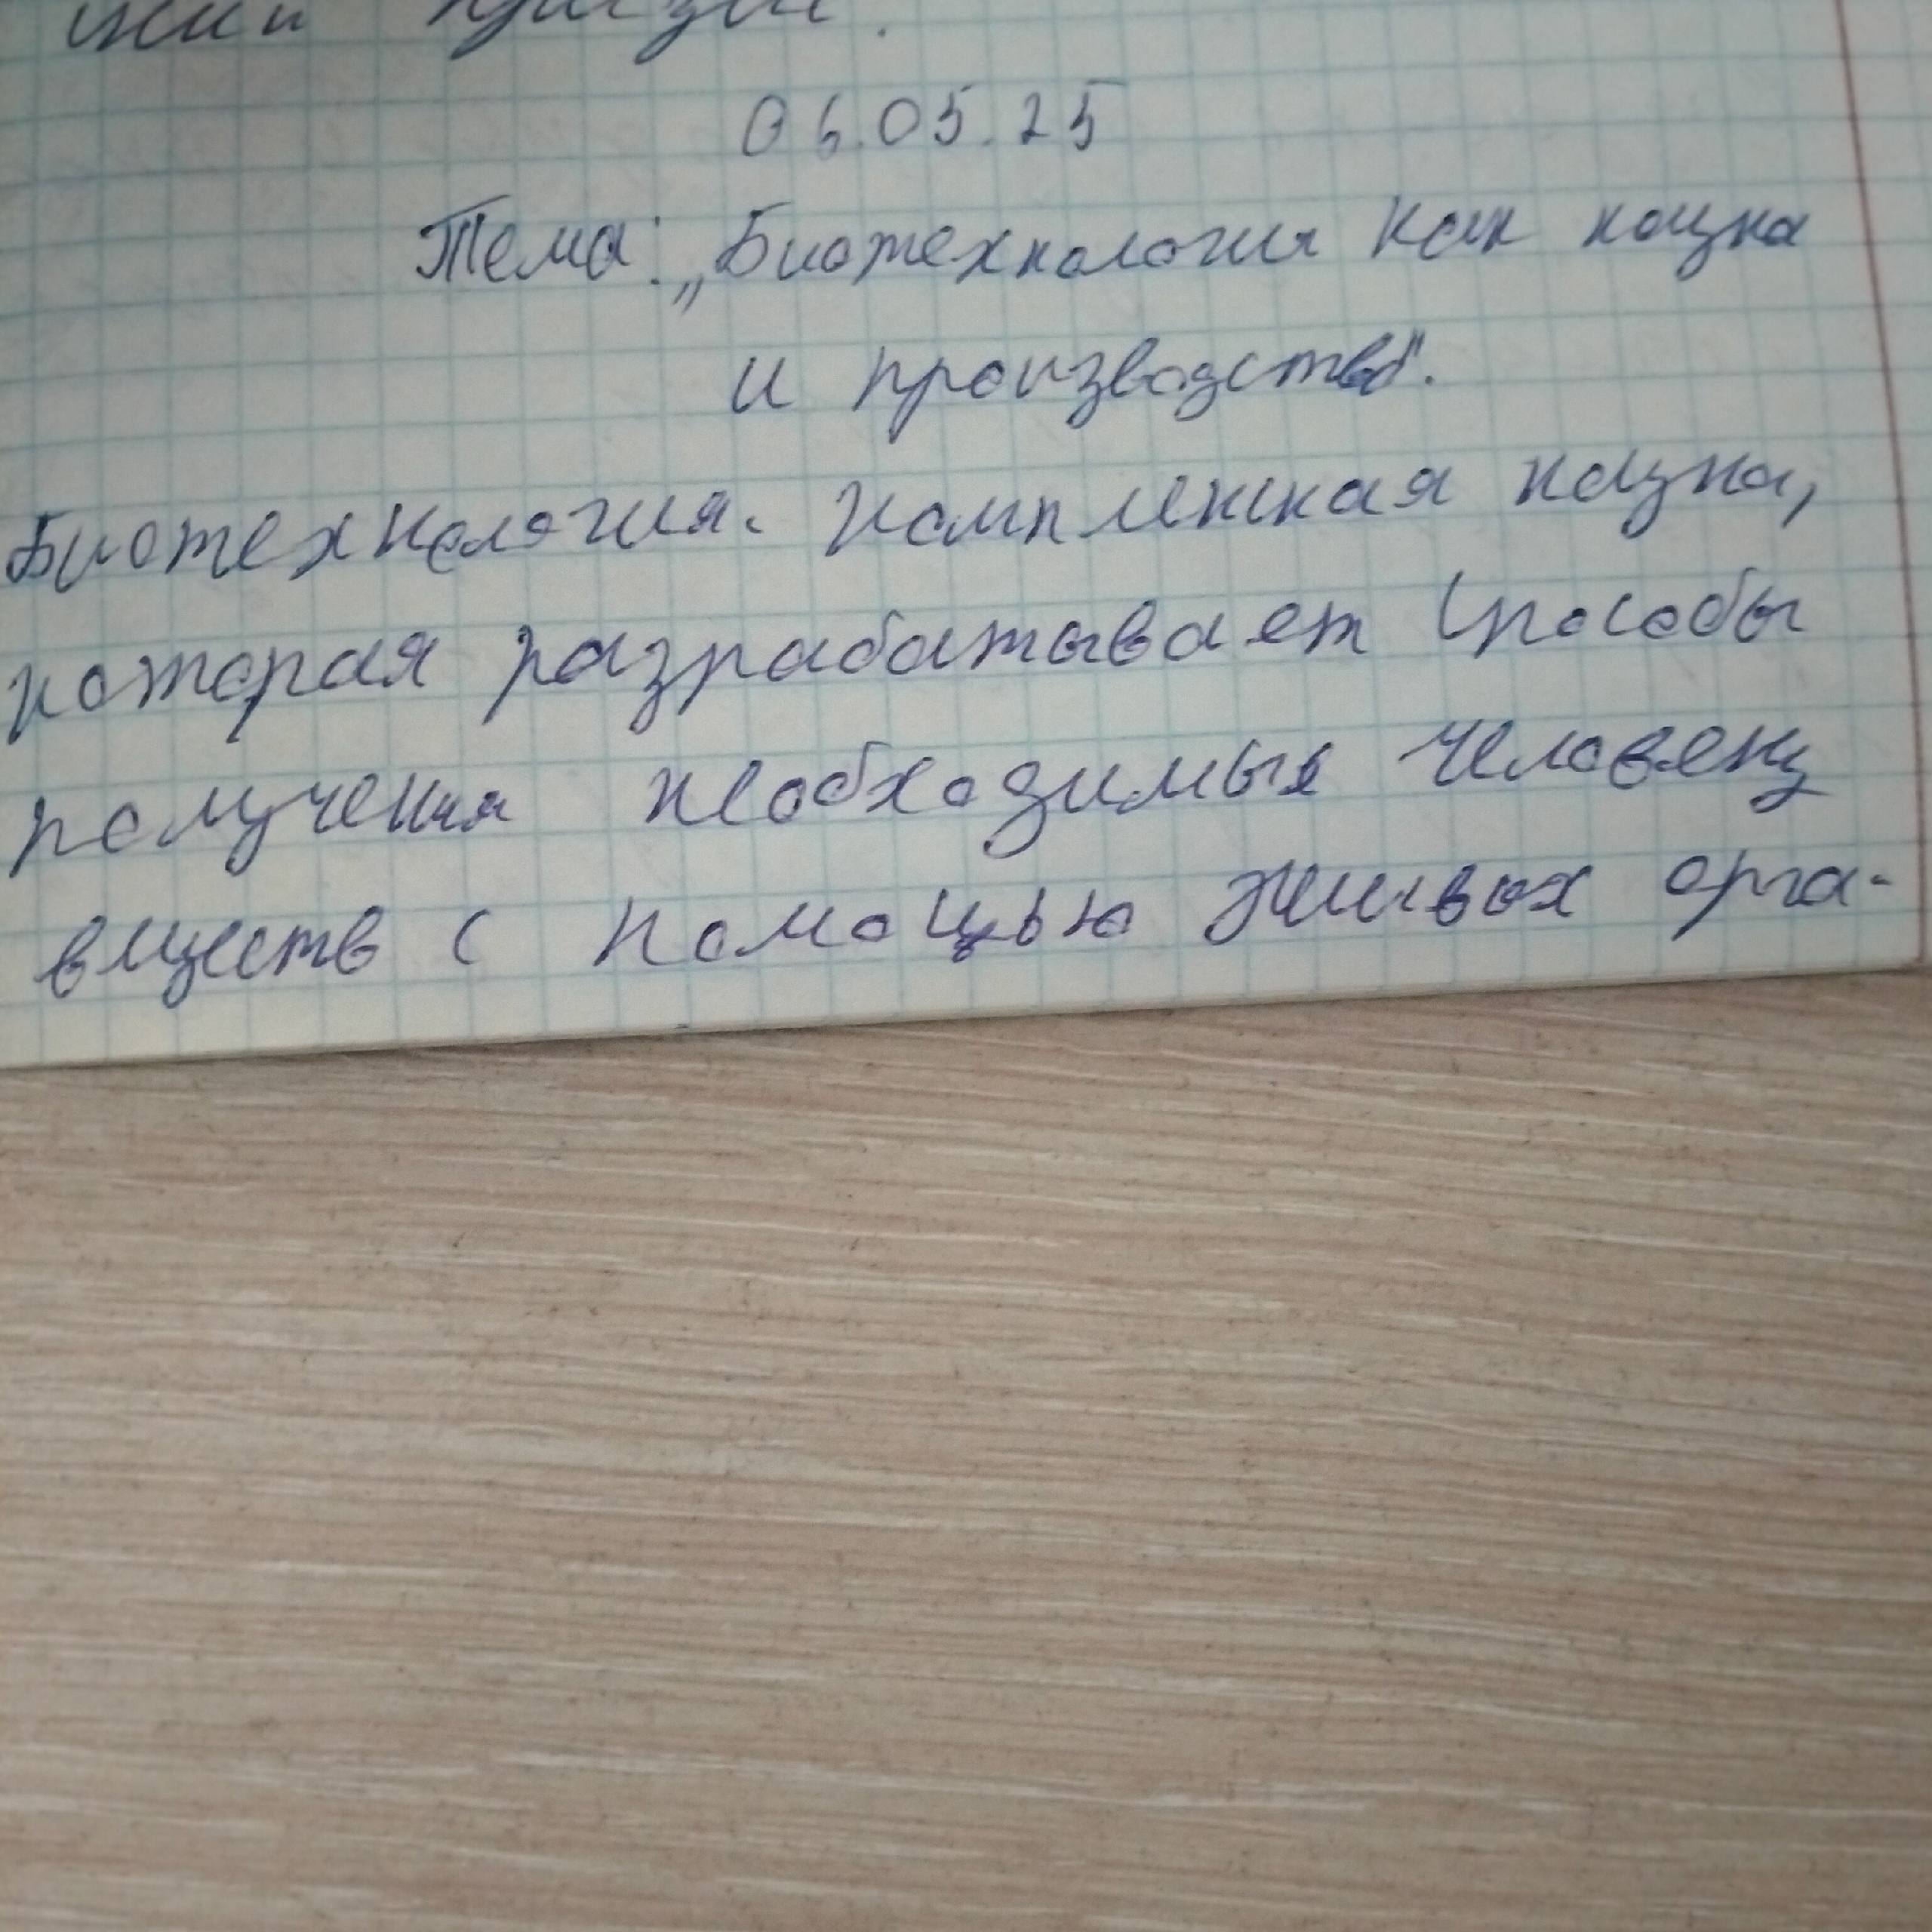 06.05.25
Тема: „Биотехнология как наука
и производство".
Биотехнология. Комплексная наука,
которая разрабатывает способы
получения необходимых человеку
веществ с помощью живых орга-